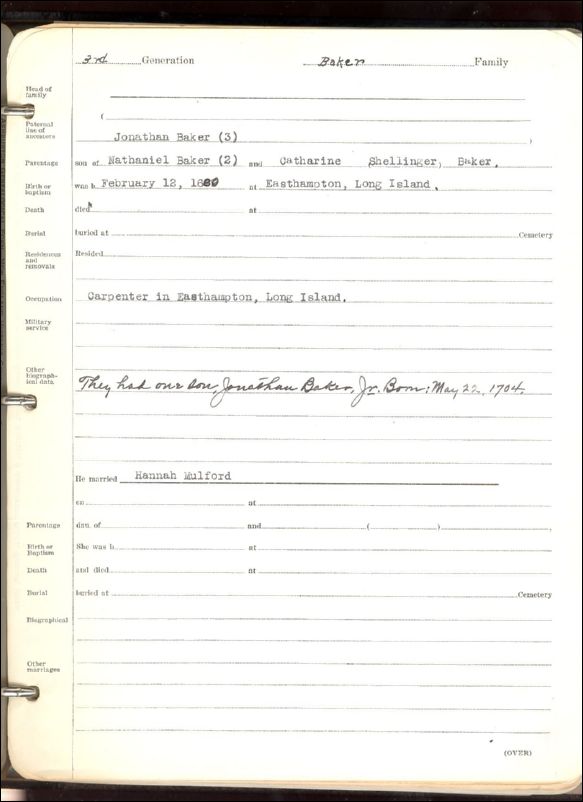 3rd Generation Baker Family
Head of
family
(
Paternal
line of
ancestors
Jonathan Baker (3) )
Parentage son of Nathaniel Baker (2) and Catharine Shellinger, Baker.
Birth or
baptism was b. February 12, 1680 at Easthampton, Long Island.
Death died at
Burial buried at Cemetery
Residences
and
removals Resided
Occupation Carpenter in Easthampton, Long Island.
Military
service
Other
biograph-
ical data They had one son, Jonathan Baker, Jr. Born: May 22, 1704.
He married Hannah Mulford
on at
Parentage dau. of and ( )
Birth or
Baptism She was b. at
Death and died at
Burial buried at Cemetery
Biographical
Other
marriages
(OVER)